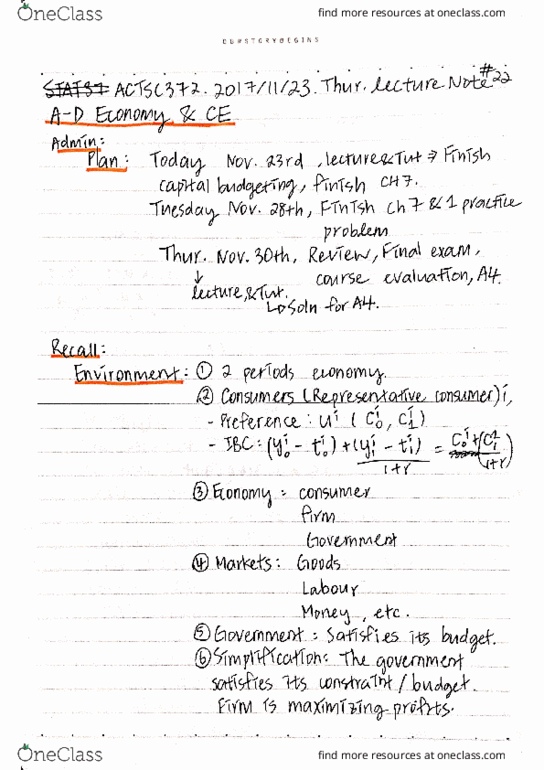 OneClass
find more resources at oneclass.com
OURSTORYBEGINS
STAT37 ACTSC372. 2017/11/23. Thur. lecture Note #22
A-D Economy & CE
Admin:
Plan: Today Nov. 23rd, lecture&Tut ⇒ Finish
capital budgeting, finish CH7.
Tuesday Nov. 28th, Finish ch7 & 1 practice
problem
Thur. Nov. 30th, Review, Final exam,
↓ course evaluation, A4.
lecture,&Tut.
↳ Soln for A4.
Recall:
Environment: ① 2 periods economy.
② Consumers (Representative consumer) i,
- Preference: u^i (c_0^i, c_1^i)
- IBC: (y_0^i - t_0^i) + (y_1^i - t_1^i)/(1+r) = c_0^i + (c_1^i)/(1+r)
③ Economy = consumer
firm
Government
④ Markets: Goods
Labour
Money, etc.
⑤ Government: Satisfies its budget.
⑥ Simplification: The government
satisfies its constraint/budget.
Firm is maximizing profits.
OneClass
find more resources at oneclass.com